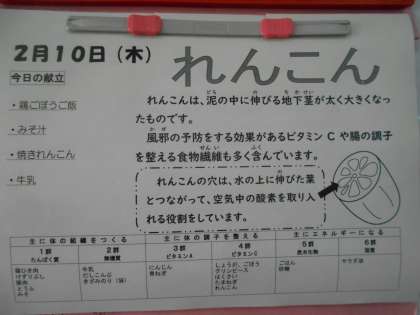 2月10日（木）
れんこん
今日の献立
・鶏ごぼうご飯
・みそ汁
・焼きれんこん
・牛乳
れんこんは、泥の中に伸びる地下茎が太く大きくなっ
たものです。
風邪の予防をする効果があるビタミンCや腸の調子
を整える食物繊維も多く含んでいます。
れんこんの穴は、水の上に伸びた葉
とつながって、空気中の酸素を取り入
れる役割をしています。
主に体の組織をつくる 主に体の調子を整える 主にエネルギーになる
1群 2群 3群 4群 5群 6群
たんぱく質 無機質 ビタミンA ビタミンC 炭水化物 脂質
鶏ひき肉 牛乳 にんじん しょうが、ごぼう ごはん サラダ油
けずりぶし だしこんぶ 青ねぎ グリンピース 砂糖
豚肉 きざみのり（袋） はくさい
とうふ たまねぎ
みそ れんこん